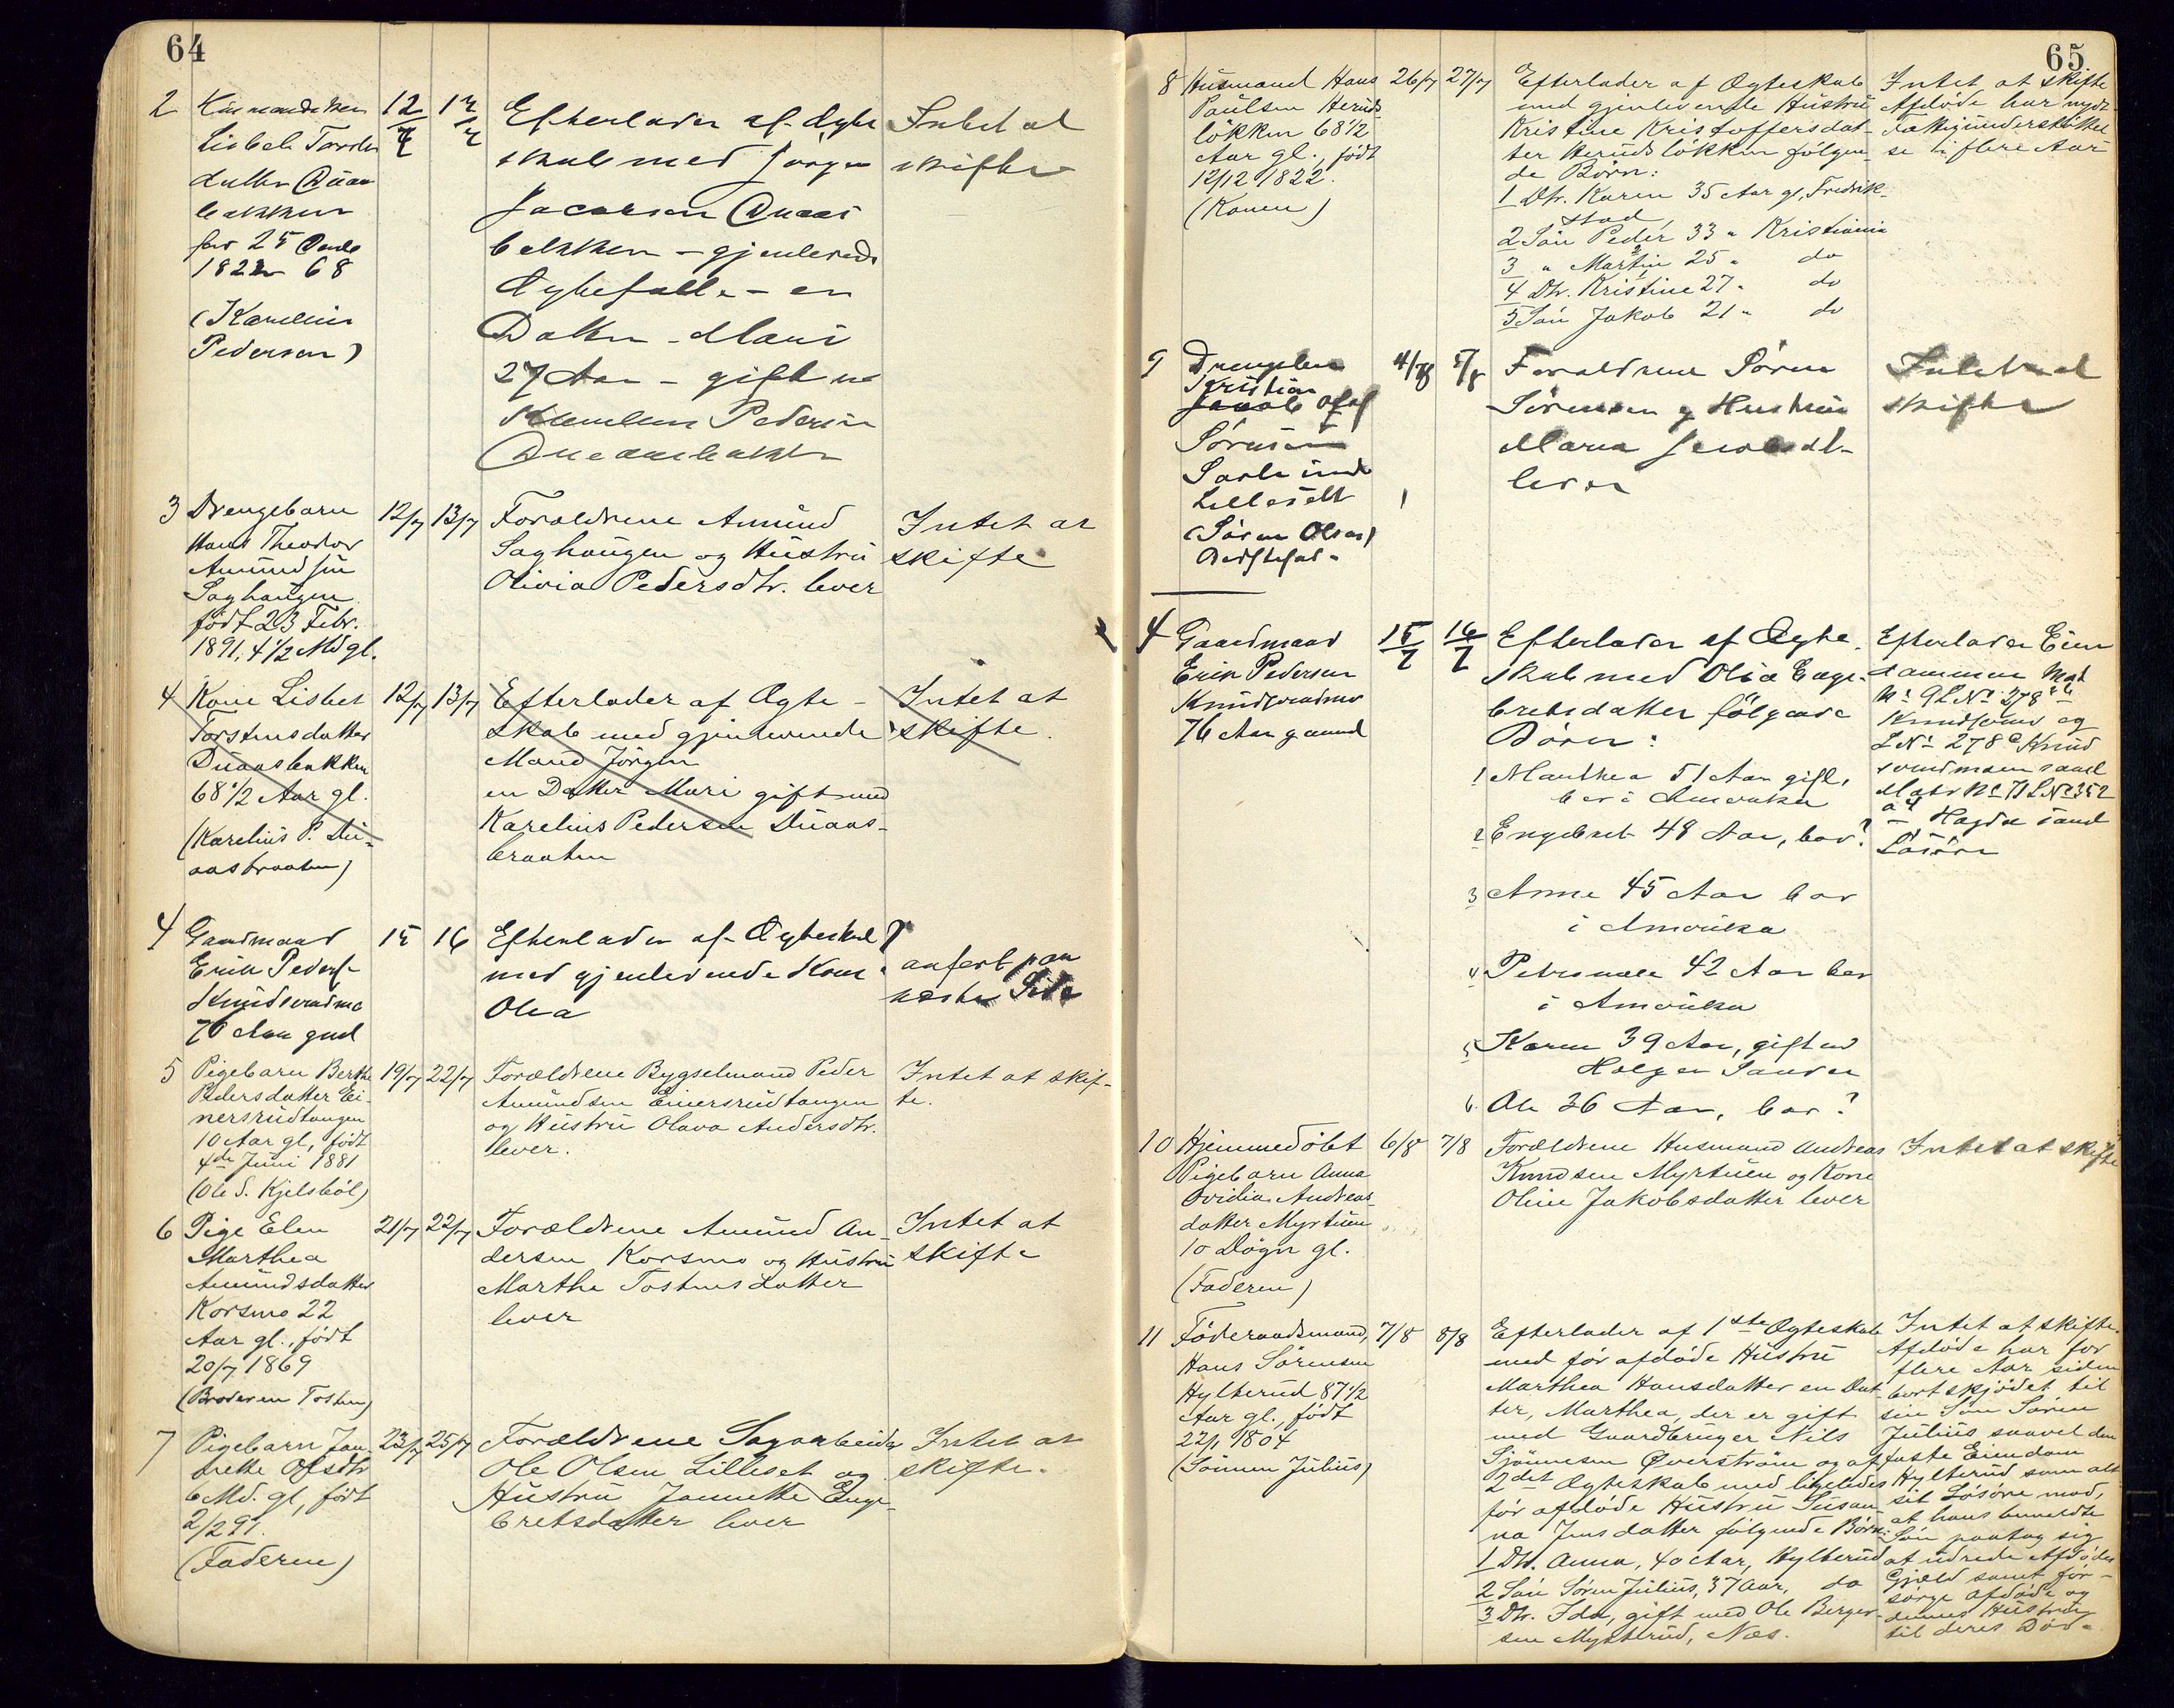 64
2 12/7 1
Lisbeth
bakken
født 25
68
Pedersen)
Efterlader af Ægte
skab med Jørgen
Jacobsen
bakken – gjenlevende
Ægtefælle – en
Datter – Mari
27 Aar – gift m
Pedersen
Intet at
skifte
3 Drengebarn 12/7 13/7
Hans Theodor
Amundsøn
Saghaugen
født 23 Febr.
1891, 4 1/2 Md gl.
Forældrene Amund
Saghaugen og Hustru
Olivia Pedersdtr. lever
Intet at
skifte
4 Kone Lisbet 12/7 13/7
Torstensdatter
Duaasbakken
68 1/2 Aar gl.
(Karelius P. Du-
aasbraaten)
Efterlader af Ægte-
skab med gjenlevende
Mand Jörgen
en Datter Mari gift med
Karelius Pedersen Duaas-
braaten
Intet at
skifte.
4 Gaardmand 15 16
Erik Peders
76 Aar gml
Efterlader af Ægteskab
med gjenlevende Kone
Olea
anført paa
næste Side
5 Pigebarn Berthe 19/7 22/7
Pedersdatter Ei-
nersrudtangen
10 Aar gl, født
4de Juni 1881
(Ole S. Kjelsböl)
Forældrene Bygselmand Peder
Amundsen Einersrudtangen
og Hustru Olava Andersdtr.
lever.
Intet at skif-
te.
6 Pige Elen 21/7 22/7
Marthea
Amundsdatter
Korsmo 22
Aar gl., født
20/7 1869
(Broderen Tosten)
Forældrene Amund An-
dersen Korsmo og Hustru
Marthe Tostensdatter
lever
Intet at
skifte
7 Pigebarn Jan- 23/7 25/7
nette Olsdtr
6 Md. gl, født
2/2 91.
(Faderen)
Forældrene Sagarbeider
Ole Olsen Lilleset og
Hustru Jannette Enge-
bretsdatter lever
Intet at
skifte.
65
8 Husmand Hans 26/7 27/7
Paulsen Heruds-
lökken 68 1/2
Aar gl., født
12/12 1822.
(Konen)
Efterlader af Ægteskab
med gjenlevende Hustru
Kristine Kristoffersdat-
ter Herudslökken følgen-
de Børn:
1 Dtr. Karen 35 Aar gl, Fredrik-
stad
2 Søn Peder, 33 " Kristiania
3 " Martin 25 " do
4 Dtr. Kristine 27 " do
5 Søn Jakob 21 " do
Intet at skifte
Afdøde har nydt
Fattigunderstøttel-
se i flere Aar
9 Drengebarn 4/8 5/8
Kristian
Jacob Olaf
Sørensen
Lilleset
(Søren Olsen)
Bedstefar
Forældrene Søren
Sørensen og Hustru
Maren Jacobsdt-
lever
Intet at
skifte
4 Gaardmand 15/7 16/7
Erik Pedersen
76 Aar gammel
Efterlader af Ægte-
skab med Olea Enge-
bretsdatter følgende
Børn:
1 Manthea 51 Aar gift,
bor i Amerika
2 Engebret 48 Aar, bor?
3 Anne 45 Aar bor
i Amerika
4 Petronelle 42 Aar bor
i Amerika
5 Karen 39 Aar, gift m
Holger Sander
6. Ole 36 Aar, bor?
Efterlader Eien
dommen Mat
No 9 LNo 278
og
LNo 278 c
samt
Matr No 71 LNo 352
samt
Løsøre
10 Hjemmedøbt 6/8 7/8
Pigebarn Anna
Ovidia Andreas-
datter Myrtuen
10 Døgn gl.
(Faderen)
Forældrene Husmand Andreas
Knudsen Myrtuen og Kone
Oline Jakobsdatter lever
Intet at skifte
11 Föderaadsmand, 7/8 8/8
Hans Sørensen
Hylterud 87 1/2
Aar gl., født
22/1 1804
(Sønnen Julius)
Efterlader af 1ste Ægteskab
med før afdøde Hustru
Marthea Hansdatter en Dat-
ter, Marthea, der er gift
med Gaardbruger Nils
Sjønnesen Øverström og af
2det Ægteskab med ligeledes
før afdøde Hustru Susan-
na Jensdatter følgende Børn:
1 Dtr. Anna, 40 Aar, Hylterud
2 Søn Søren Julius, 37 Aar, do
3 Dtr. Ida, gift med Ole Berger-
sen Mytterud, Næs.
Intet at skifte.
Afdøde har for
flere Aar siden
bortskjødet til
sin Søn Søren
Julius saavel den
faste Eiendom
Hylterud som alt
sit Løsøre mod,
at hans benævnte
Søn paatog sig
at udrede Afdødes
Gjæld samt for-
sørge afdøde og
dennes Hustru
til deres Død.